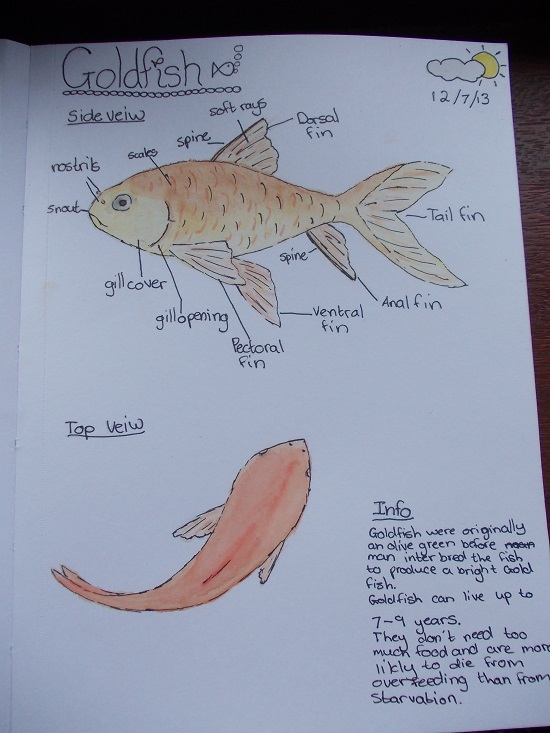 Goldfish
12/7/13
Side veiw
soft rays
Dorsal
fin
spine
scales
nostrils
snout
Tail fin
spine
gill cover
Anal fin
gill opening
Ventral
fin
Pectoral
fin
Top veiw
Info
Goldfish were originally
an olive green before
man inter bred the fish
to produce a bright Gold
fish.
Goldfish can live up to
7-9 years.
They don't need too
much food and are more
likly to die from
overfeeding than from
starvation.